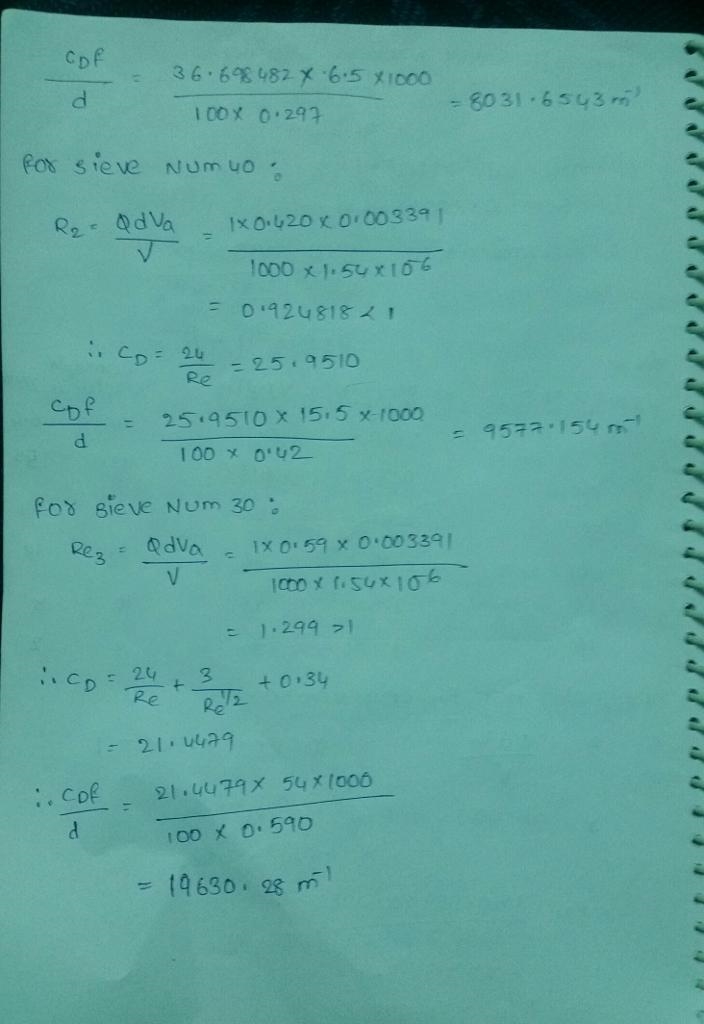 CDf / d = 36.698482 × 6.5 × 1000 / 100 × 0.297 = 8031.6543 m⁻¹
for sieve Num 40 :
R2 = QdVa / V = 1×0.420 × 0.003391 / 1000 × 1.54 × 10⁻6
= 0.924818 < 1
∴ CD = 24 / Re = 25.9510
CDf / d = 25.9510 × 15.5 × 1000 / 100 × 0.42 = 9577.154 m⁻¹
for sieve Num 30 :
Re3 = QdVa / V = 1×0.59 × 0.003391 / 1000 × 1.54×10⁻6
= 1.299 >1
∴ CD = 24 / Re + 3 / Re^1/2 + 0.34
= 21.4479
∴ CDf / d = 21.4479 × 54×1000 / 100 × 0.590
= 19630.28 m⁻¹